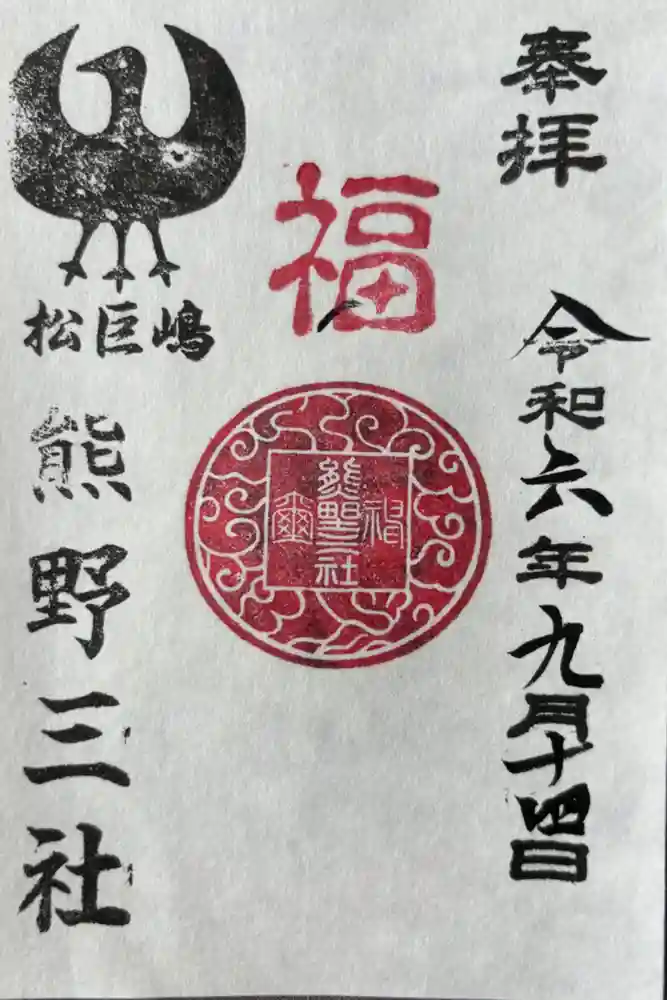 奉拝
令和六年九月十四日
福
熊野三社
松巨嶋
熊野三社